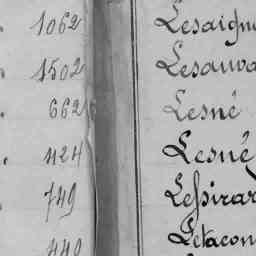 1062 Lesaign
1502 Lesauva
662 Lesné
424 Lesné
749 Lespirar
440 Letacon